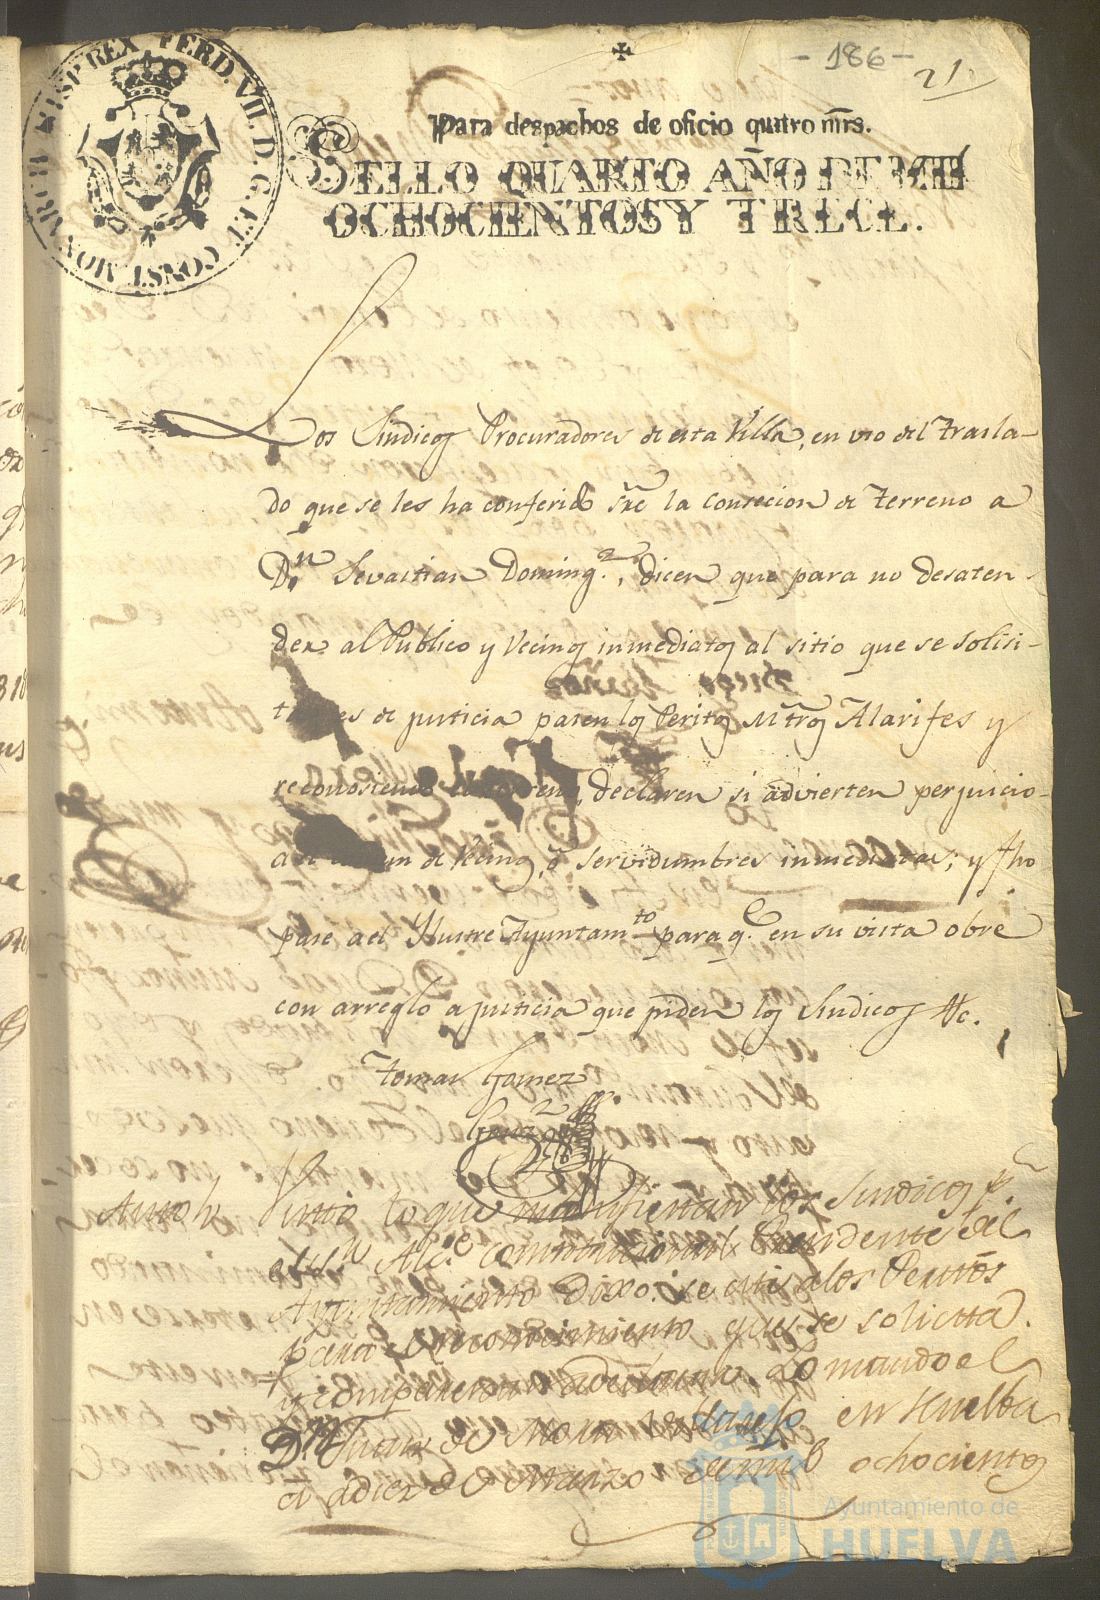 - 186 -
21
HISP. REX FERD. VII. D. G. ET CONST. MON.
Para despachos de oficio quatro mrs.
SELLO QUARTO AÑO DE MIL
OCHOCIENTOS Y TRECE.
Los Sindicos Procuradores de esta Villa, en vso del trasla-
do que se les ha conferido sre la consecion de terreno a
Dn. Sevastian Domingz., dicen que para no desaten-
der al Publico y Vecinos inmediatos al sitio que se solisi-
ta es de justicia pasen los Peritos Mtros Alarifes y
reconosiendo el terreno, declaren si advierten perjuicio
de Vecinos, ó servidumbres inmediatas; y fho
pase a el Ilustre Ayuntamto para qe. en su vista obre
con arreglo a justicia que piden los Sindicos &c.
Tomas Gomez
Auto Visto lo que manifiestan los Sindicos pr.
el Sr. Alce. constitucional Presidente del
Ayuntamiento Dixo: se cite a los Peritos
para el reconocimiento que se solicita.
y comparescan a declarar. Lo mando el
Dn. Juan de Mora en Huelba
a diez de Marzo de mil ochocientos
Ayuntamiento de
HUELVA